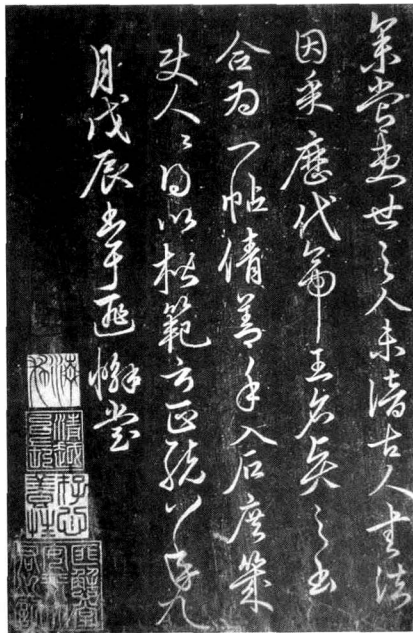 余嘗患世之人未諳古人書法
因采歷代帝王名賢之書
合為一帖倩善手入石庶幾
使人〻得以楷範云正統八年九
月戊辰書于匪懈堂
匪懈堂